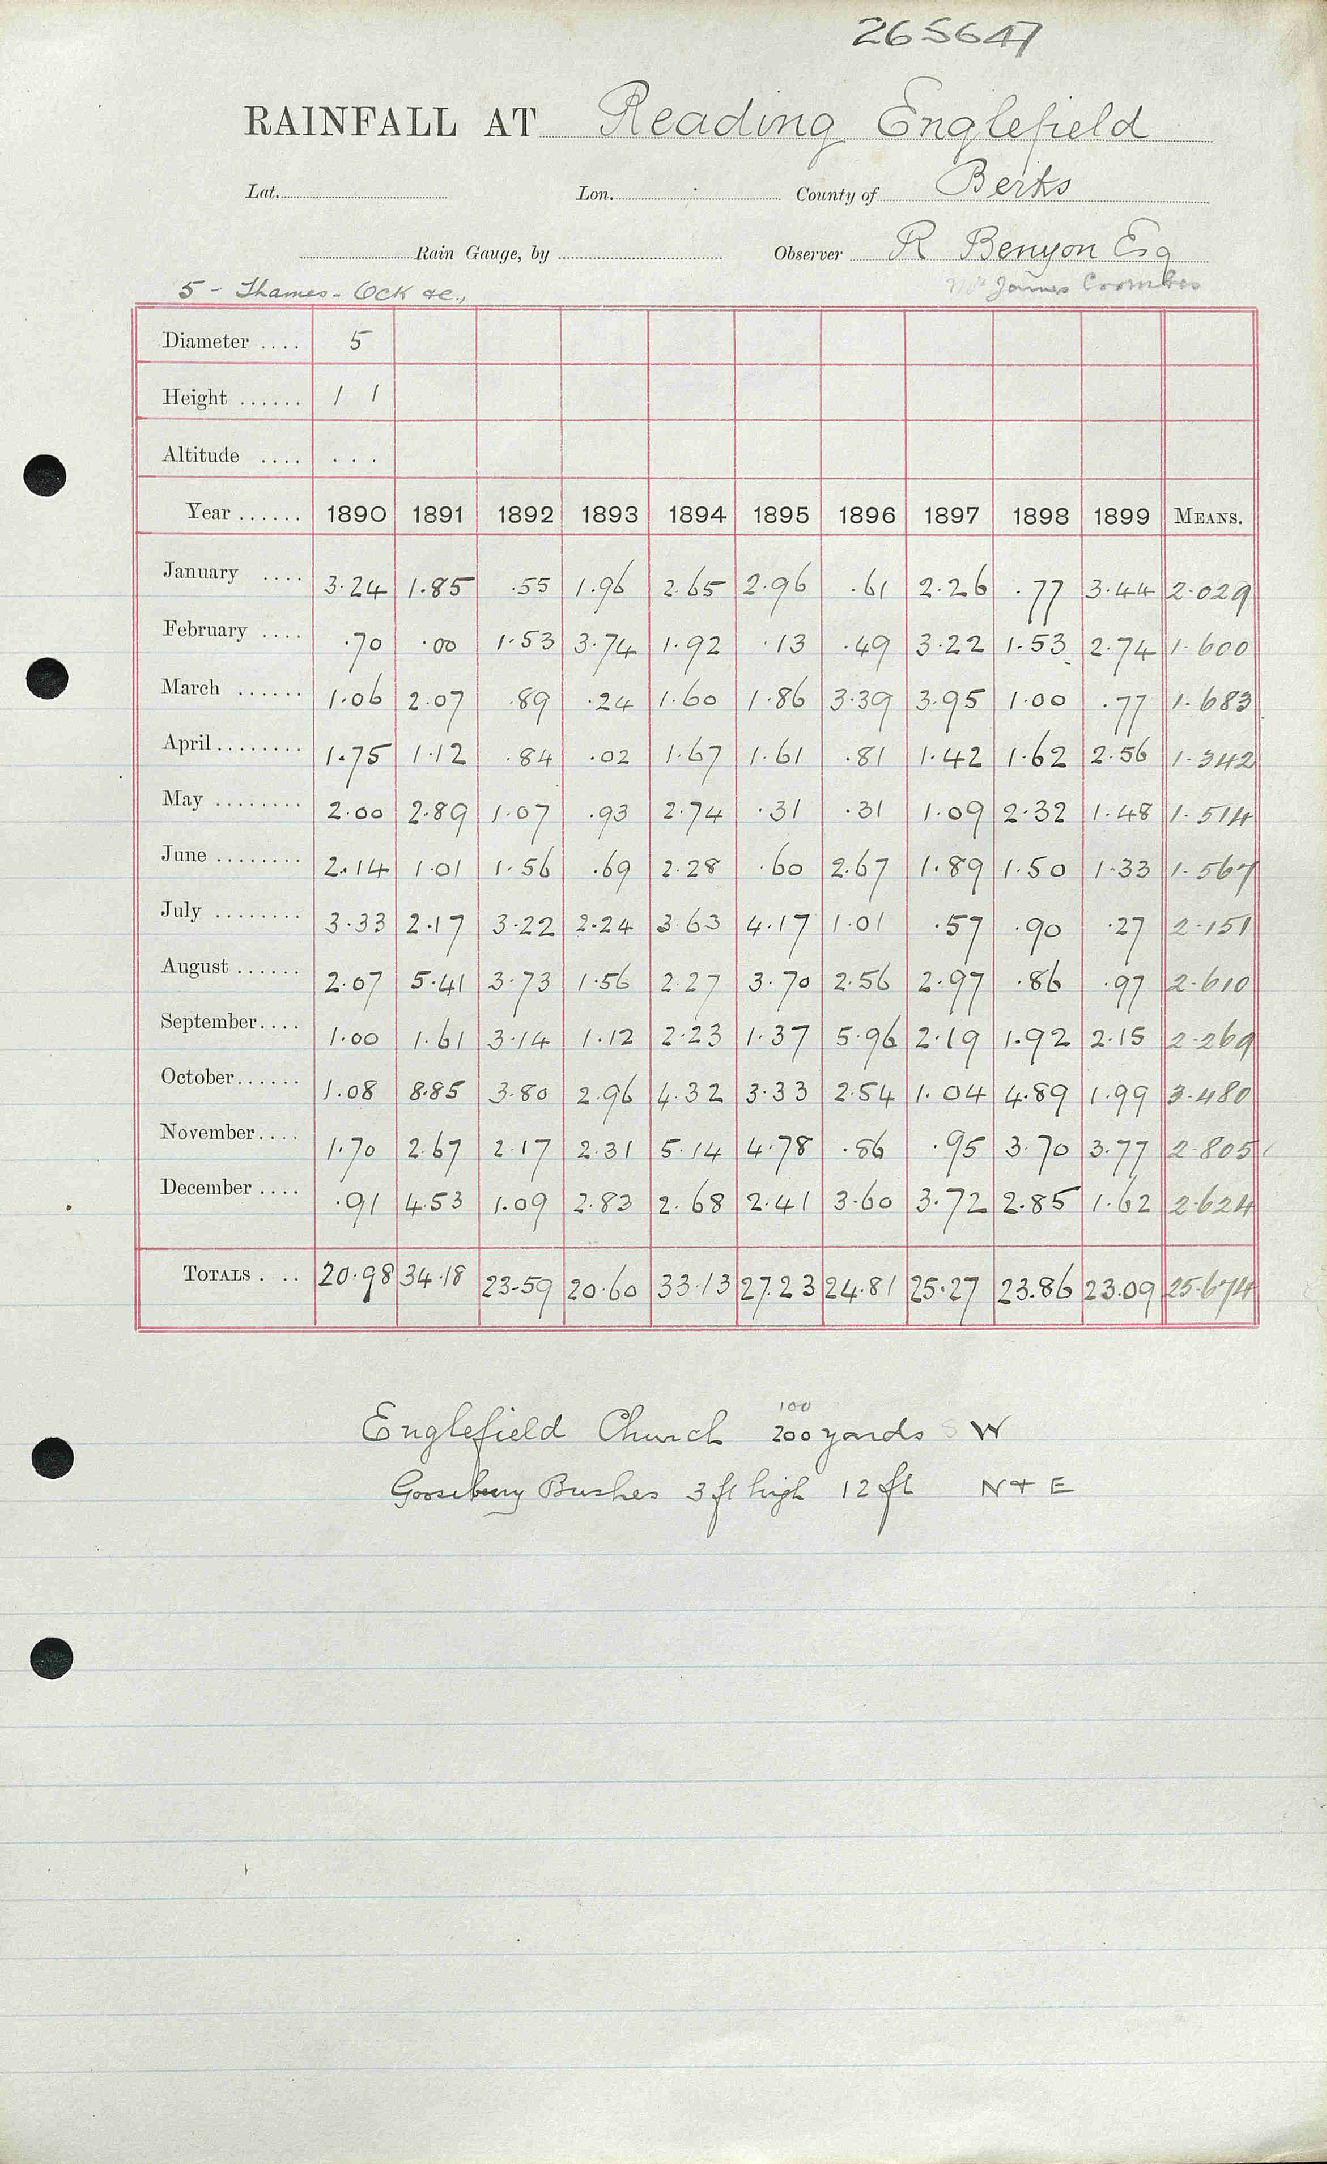 265647
RAINFALL AT Reading Englefield
Lat. Lon. County of Berks
Rain Gauge, by Observer R Benyon Esq
5 - Thames - Ock &c., James Coombes
Diameter .... 5
Height ...... 1 1
Altitude .... . . .
Year ...... 1890 1891 1892 1893 1894 1895 1896 1897 1898 1899 MEANS.
January .... 3.24 1.85 .55 1.96 2.65 2.96 .61 2.26 .77 3.44 2.029
February .... .70 .00 1.53 3.74 1.92 .13 .49 3.22 1.53 2.74 1.600
March ...... 1.06 2.07 .89 .24 1.60 1.86 3.39 3.95 1.00 .77 1.683
April........ 1.75 1.12 .84 .02 1.67 1.61 .81 1.42 1.62 2.56 1.342
May ........ 2.00 2.89 1.07 .93 2.74 .31 .31 1.09 2.32 1.48 1.514
June ........ 2.14 1.01 1.56 .69 2.28 .60 2.67 1.89 1.50 1.33 1.567
July ........ 3.33 2.17 3.22 2.24 3.63 4.17 1.01 .57 .90 .27 2.151
August ...... 2.07 5.41 3.73 1.56 2.27 3.70 2.56 2.97 .86 .97 2.610
September.... 1.00 1.61 3.14 1.12 2.23 1.37 5.96 2.19 1.92 2.15 2.269
October...... 1.08 8.85 3.80 2.96 4.32 3.33 2.54 1.04 4.89 1.99 3.480
November.... 1.70 2.67 2.17 2.31 5.14 4.78 .86 .95 3.70 3.77 2.805
December .... .91 4.53 1.09 2.83 2.68 2.41 3.60 3.72 2.85 1.62 2.624
TOTALS . .. 20.98 34.18 23.59 20.60 33.13 27.23 24.81 25.27 23.86 23.09 25.674
100
Englefield Church 200 yards S W
Goosebury Bushes 3 ft high 12 ft N + E